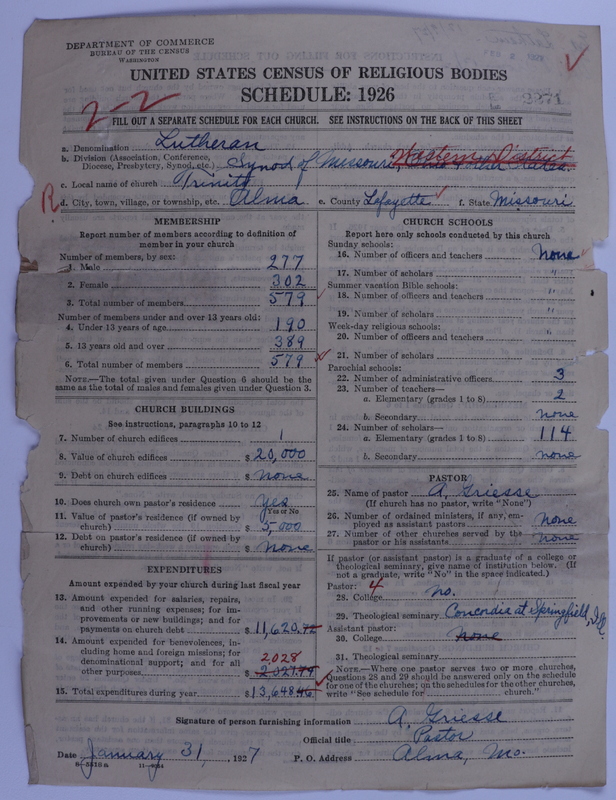 DEPARTMENT OF COMMERCE
BUREAU OF THE CENSUS
WASHINGTON
UNITED STATES CENSUS OF RELIGIOUS BODIES
SCHEDULE: 1926
2-2
FILL OUT A SEPARATE SCHEDULE FOR EACH CHURCH. SEE INSTRUCTIONS ON THE BACK OF THIS SHEET
a. Denomination Lutheran
b. Division (Association, Conference, Diocese, Presbytery, Synod, etc.) Synod of Missouri, Western District
c. Local name of church Trinity
R d. City, town, village, or township, etc. Alma e. County Lafayette f. State Missouri
MEMBERSHIP
Report number of members according to definition of member in your church
Number of members, by sex:
1. Male 277
2. Female 302
3. Total number of members 579
Number of members under and over 13 years old:
4. Under 13 years of age 190
5. 13 years old and over 389
6. Total number of members 579
NOTE.—The total given under Question 6 should be the same as the total of males and females given under Question 3.
CHURCH BUILDINGS
See instructions, paragraphs 10 to 12
7. Number of church edifices 1
8. Value of church edifices $ 20,000
9. Debt on church edifices $ none
10. Does church own pastor's residence yes
(Yes or No)
11. Value of pastor's residence (if owned by church) $ 5,000
12. Debt on pastor's residence (if owned by church) $ none
EXPENDITURES
Amount expended by your church during last fiscal year
13. Amount expended for salaries, repairs, and other running expenses; for improvements or new buildings; and for payments on church debt $ 11,620.72
14. Amount expended for benevolences, including home and foreign missions; for denominational support; and for all other purposes 2028 $
15. Total expenditures during year $ 13,648
CHURCH SCHOOLS
Report here only schools conducted by this church
Sunday schools:
16. Number of officers and teachers none
17. Number of scholars "
Summer vacation Bible schools:
18. Number of officers and teachers "
19. Number of scholars "
Week-day religious schools:
20. Number of officers and teachers "
21. Number of scholars "
Parochial schools:
22. Number of administrative officers 3
23. Number of teachers—
a. Elementary (grades 1 to 8) 2
b. Secondary none
24. Number of scholars—
a. Elementary (grades 1 to 8) 114
b. Secondary none
PASTOR
25. Name of pastor A. Griesse
(If church has no pastor, write "None")
26. Number of ordained ministers, if any, employed as assistant pastors none
27. Number of other churches served by the pastor or his assistants none
If pastor (or assistant pastor) is a graduate of a college or theological seminary, give name of institution below. (If not a graduate, write "No" in the space indicated.)
Pastor: 4
28. College no.
29. Theological seminary Concordia at Springfield, Ill
Assistant pastor:
30. College none
31. Theological seminary
NOTE.—Where one pastor serves two or more churches, Questions 28 and 29 should be answered only on the schedule for one of the churches; on the schedules for the other churches, write "See schedule for church."
Signature of person furnishing information A. Griesse
Official title Pastor
Date January 31, 1927 P. O. Address Alma, Mo.